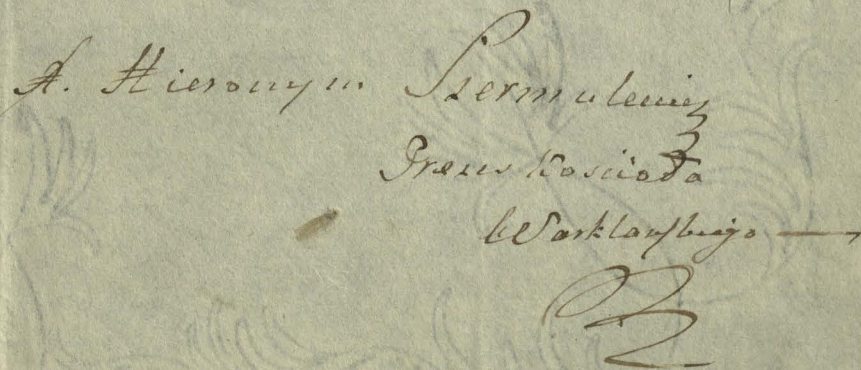 X. Hieronym Szermulewicz
Prezes Kościoła
Warklańskiego